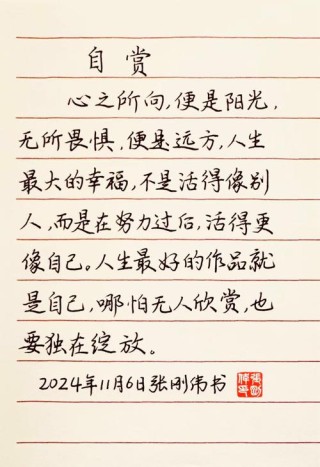 自赏
心之所向,便是阳光,
无所畏惧,便是远方,人生
最大的幸福,不是活得像别
人,而是在努力过后,活得更
像自己。人生最好的作品就
是自己,哪怕无人欣赏,也
要独在绽放。
2024年11月6日张刚伟书